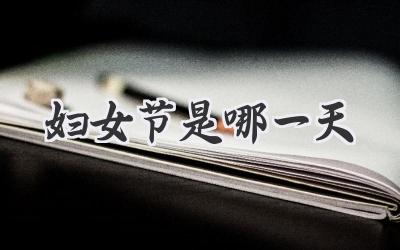 妇女节是哪一天